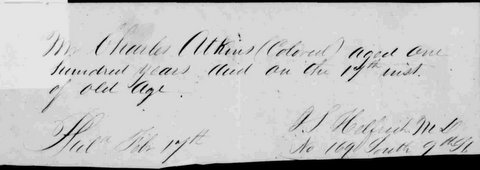 Mr Charles Atkins (Colored) aged one
hundred years died on the 17th inst.
of old Age.
Phila Feb 17th
J. S. M.D
No 169 South 9th St